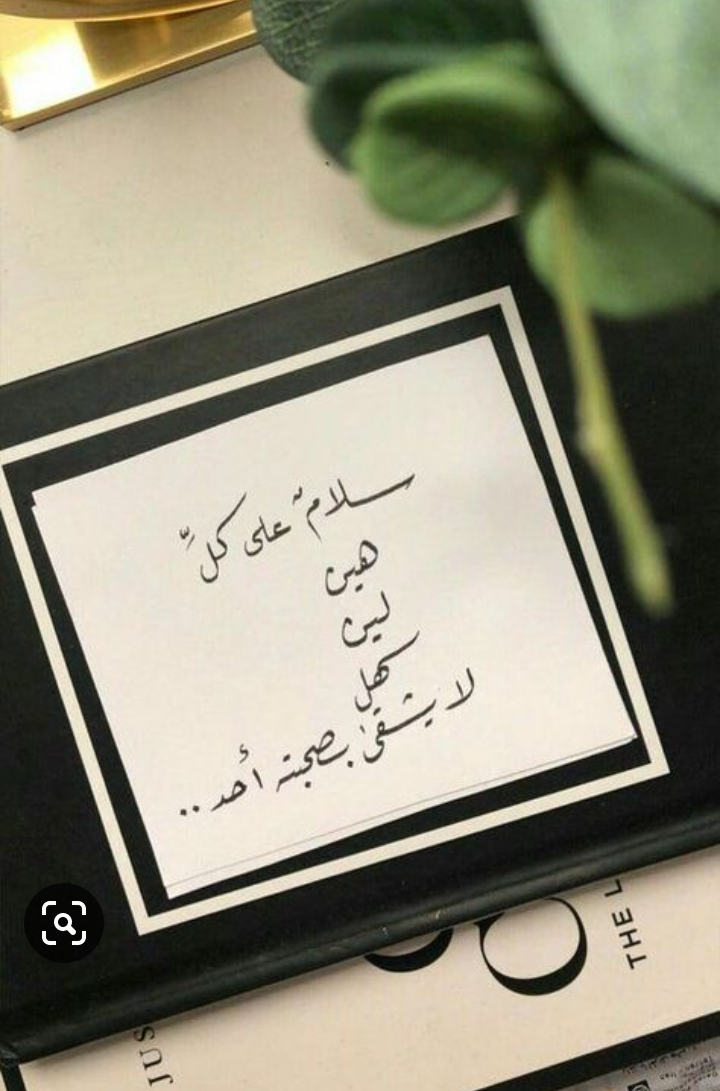 سلامٌ على كلِّ
هين
لين
سهل
لا يشقىٰ بصحبته أحد ..
THE L
JUS